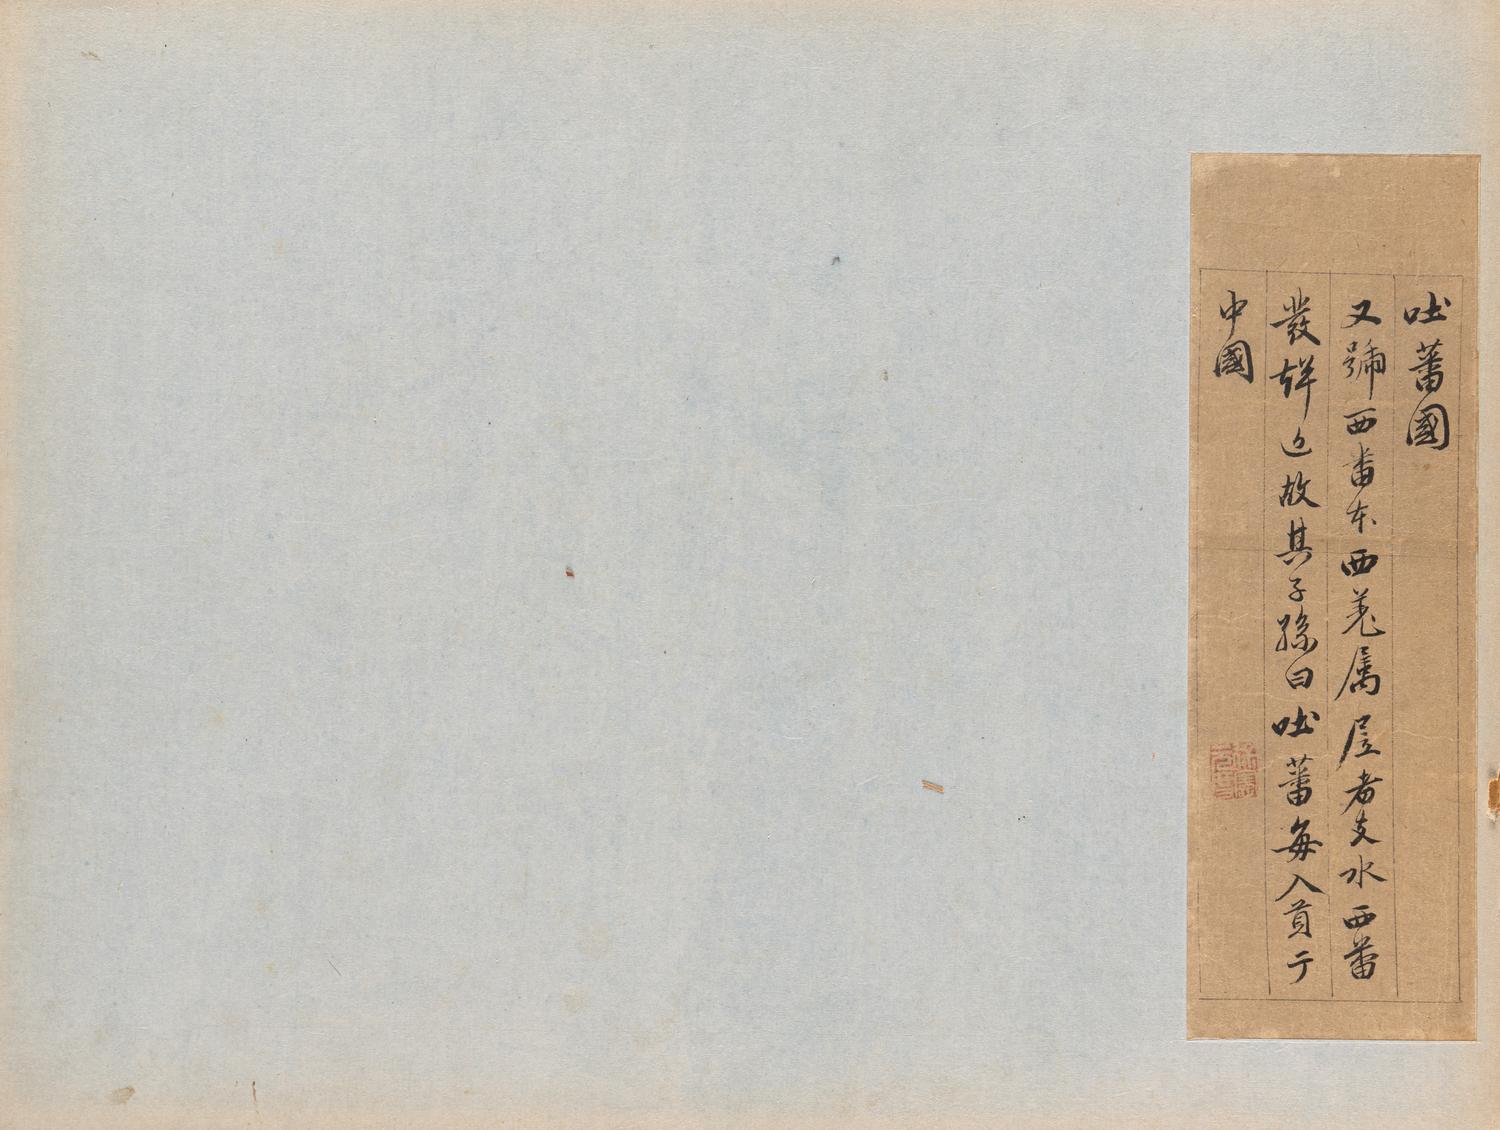 吐蕃國
又號西番本西羌属居者支水西蕃
發近故其子孫曰吐蕃每入貢于
中國